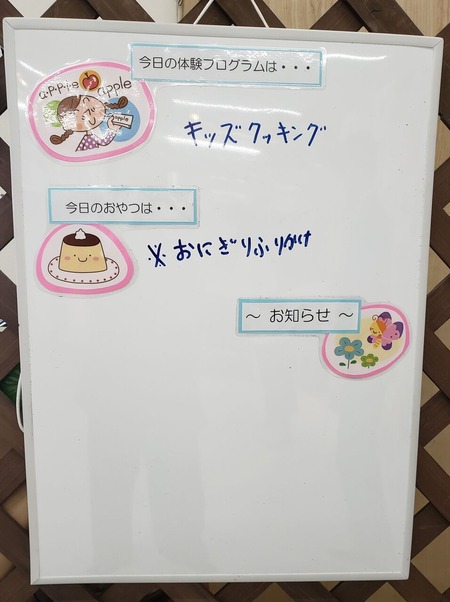 今日の体験プログラムは・・・
a・p・p・l・e
apple
apple
キッズクッキング
今日のおやつは・・・
※おにぎりふりかけ
～ お知らせ ～